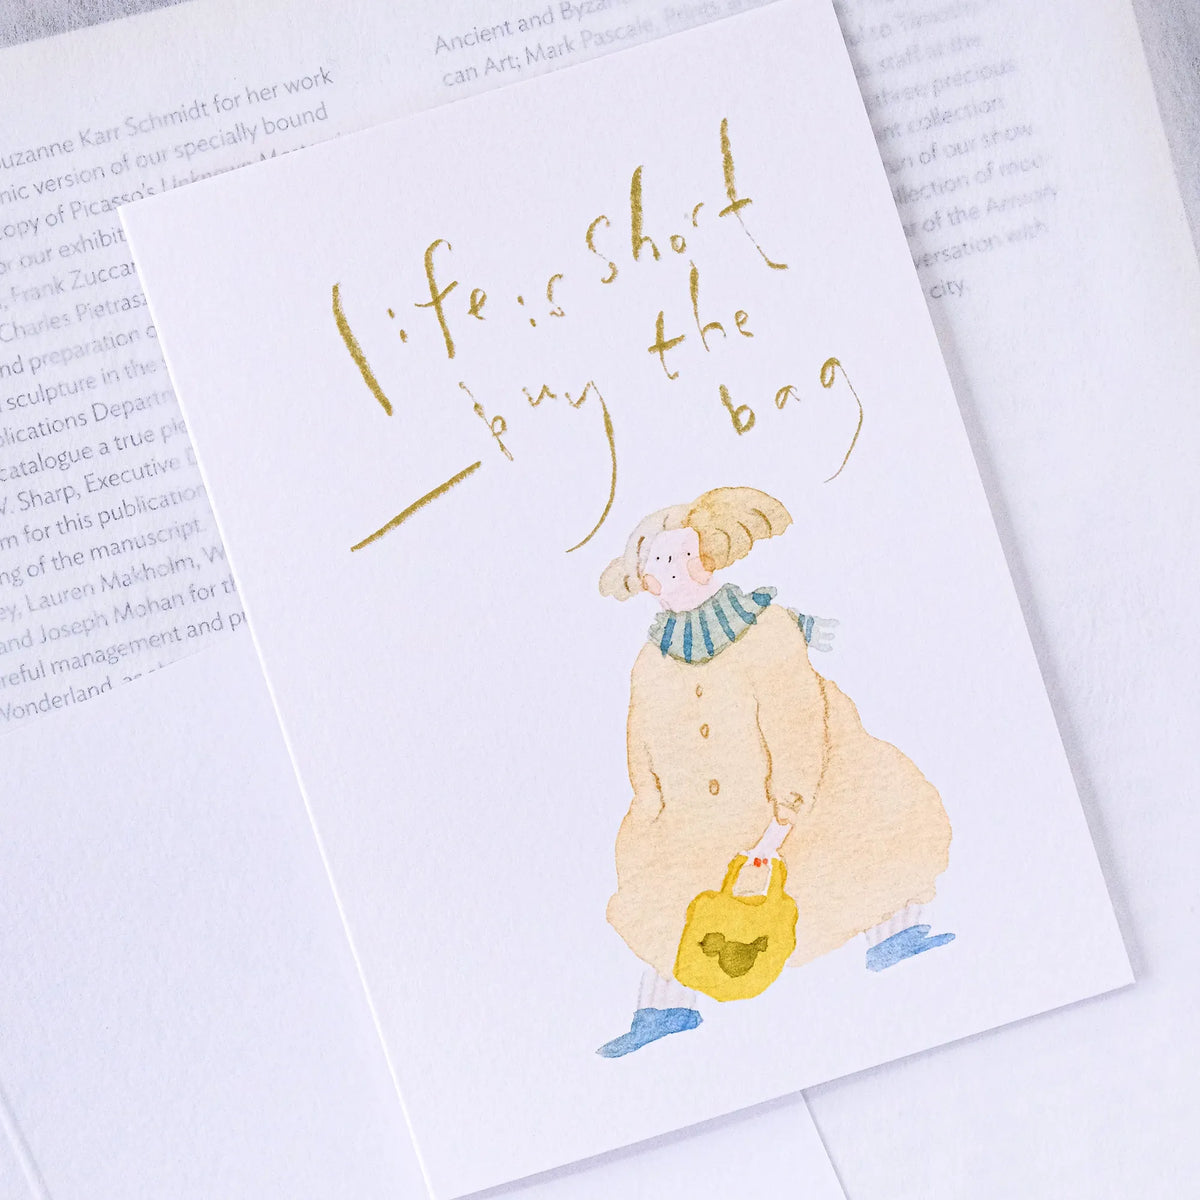 life is short
buy the
bag
uzanne Karr Schmidt for her work
nic version of our specially bound
opy of Picasso's Unknown
or our exhibit
Frank Zuccar
Charles Pietrasz
nd preparation o
sculpture in the
lications Departm
catalogue a true
V. Sharp, Executive
m for this publication
ng of the manuscript.
ey, Lauren Makholm, W
and Joseph Mohan for th
reful management and pr
Wonderland, as
Ancient and Byzan
can Art; Mark Pascale, Prints
to Timothy
staff at the
three precious
nt collection
on of our show.
llection of
of the
versation with
city.